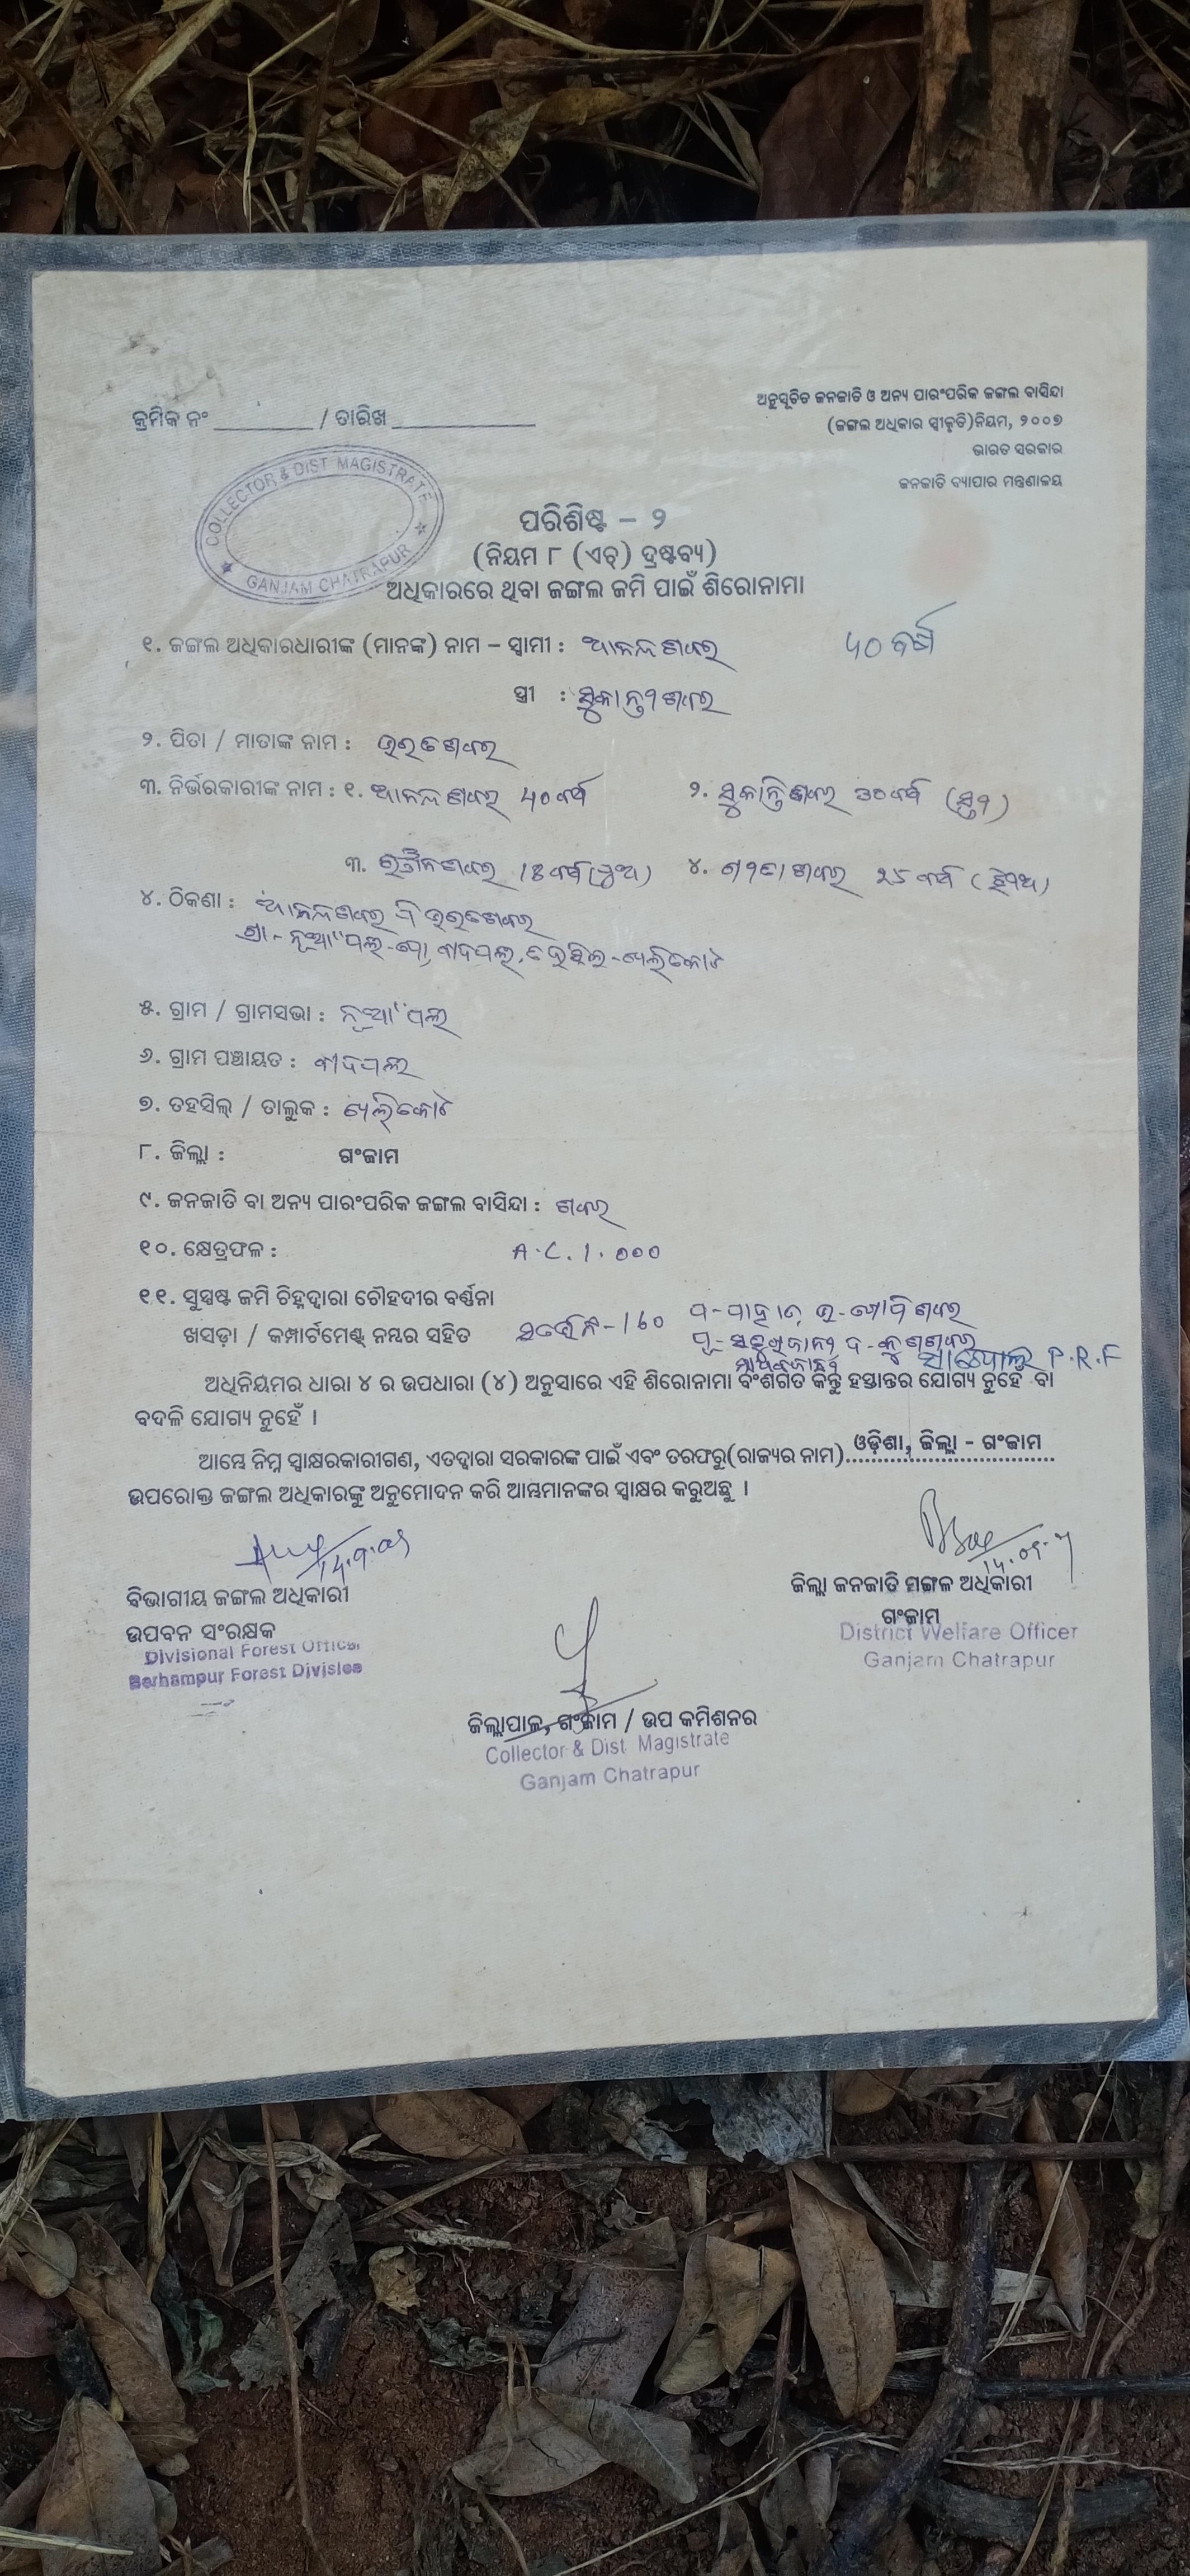 କ୍ରମିକ ନଂ ________ / ତାରିଖ ____________
ଅନୁସୂଚିତ ଜନଜାତି ଓ ଅନ୍ୟ ପାରଂପରିକ ଜଙ୍ଗଲ ବାସିନ୍ଦା
(ଜଙ୍ଗଲ ଅଧିକାର ସ୍ୱୀକୃତି)ନିୟମ, ୨୦୦୭
ଭାରତ ସରକାର
ଜନଜାତି ବ୍ୟାପାର ମନ୍ତ୍ରଣାଳୟ
COLLECTOR & DIST MAGISTRATE
GANJAM CHATRAPUR
ପରିଶିଷ୍ଟ – ୨
(ନିୟମ ୮ (ଏଚ୍) ଦ୍ରଷ୍ଟବ୍ୟ)
ଅଧିକାରରେ ଥିବା ଜଙ୍ଗଲ ଜମି ପାଇଁ ଶିରୋନାମା
୧. ଜଙ୍ଗଲ ଅଧିକାରଧାରୀଙ୍କ (ମାନଙ୍କ) ନାମ – ସ୍ୱାମୀ : ଆନନ୍ଦ ଶବର ୪୦ ବର୍ଷ
ସ୍ତ୍ରୀ : ସୁକାନ୍ତୀ ଶବର
୨. ପିତା / ମାତାଙ୍କ ନାମ : ଭରତ ଶବର
୩. ନିର୍ଭରକାରୀଙ୍କ ନାମ : ୧. ଆନନ୍ଦ ଶବର ୪୦ ବର୍ଷ ୨. ସୁକାନ୍ତି ଶବର ୩୦ ବର୍ଷ (ସ୍ତ୍ରୀ)
୩. ଶବର ବର୍ଷ (ପୁଅ) ୪. ଶବର ବର୍ଷ (ଝିଅ)
୪. ଠିକଣା : ଆନନ୍ଦ ଶବର ପି ଭରତ ଶବର
ଗ୍ରା - ନୂଆଁପଲ୍ଲୀ - ପୋ - ତହସିଲ - ଖଲ୍ଲିକୋଟ
୫. ଗ୍ରାମ / ଗ୍ରାମସଭା : ନୂଆଁପଲ୍ଲୀ
୬. ଗ୍ରାମ ପଞ୍ଚାୟତ :
୭. ତହସିଲ୍ / ତାଲୁକ : ଖଲ୍ଲିକୋଟ
୮. ଜିଲ୍ଲା : ଗଂଜାମ
୯. ଜନଜାତି ବା ଅନ୍ୟ ପାରଂପରିକ ଜଙ୍ଗଲ ବାସିନ୍ଦା : ଶବର
୧୦. କ୍ଷେତ୍ରଫଳ : A.C. 1.000
୧୧. ସୁସ୍ପଷ୍ଟ ଜମି ଚିହ୍ନଦ୍ୱାରା ଚୌହଦୀର ବର୍ଣ୍ଣନା
ଖସଡ଼ା / କମ୍ପାର୍ଟମେଣ୍ଟ୍ ନମ୍ବର ସହିତ ପ - ପାହାଡ଼ ଉ - ଗୋପି ଶବର
ପୂ - ଦ - ଶବର P.R.F
ଅଧିନିୟମର ଧାରା ୪ ର ଉପଧାରା (୪) ଅନୁସାରେ ଏହି ଶିରୋନାମା ବଂଶଗତ କିନ୍ତୁ ହସ୍ତାନ୍ତର ଯୋଗ୍ୟ ନୁହେଁ ବା
ବଦଳି ଯୋଗ୍ୟ ନୁହେଁ ।
ଆମ୍ଭେ ନିମ୍ନ ସ୍ୱାକ୍ଷରକାରୀଗଣ, ଏତଦ୍ୱାରା ସରକାରଙ୍କ ପାଇଁ ଏବଂ ତରଫରୁ(ରାଜ୍ୟର ନାମ) ଓଡ଼ିଶା, ଜିଲ୍ଲା - ଗଂଜାମ
ଉପରୋକ୍ତ ଜଙ୍ଗଲ ଅଧିକାରଙ୍କୁ ଅନୁମୋଦନ କରି ଆମ୍ଭମାନଙ୍କର ସ୍ୱାକ୍ଷର କରୁଅଛୁ ।
ବିଭାଗୀୟ ଜଙ୍ଗଲ ଅଧିକାରୀ
ଉପବନ ସଂରକ୍ଷକ
Divisional Forest Officer
Berhampur Forest Division
ଜିଲ୍ଲା ଜନଜାତି ମଙ୍ଗଳ ଅଧିକାରୀ
ଗଂଜାମ
District Welfare Officer
Ganjam Chatrapur
ଜିଲ୍ଲାପାଳ, ଗଂଜାମ / ଉପ କମିଶନର
Collector & Dist. Magistrate
Ganjam Chatrapur